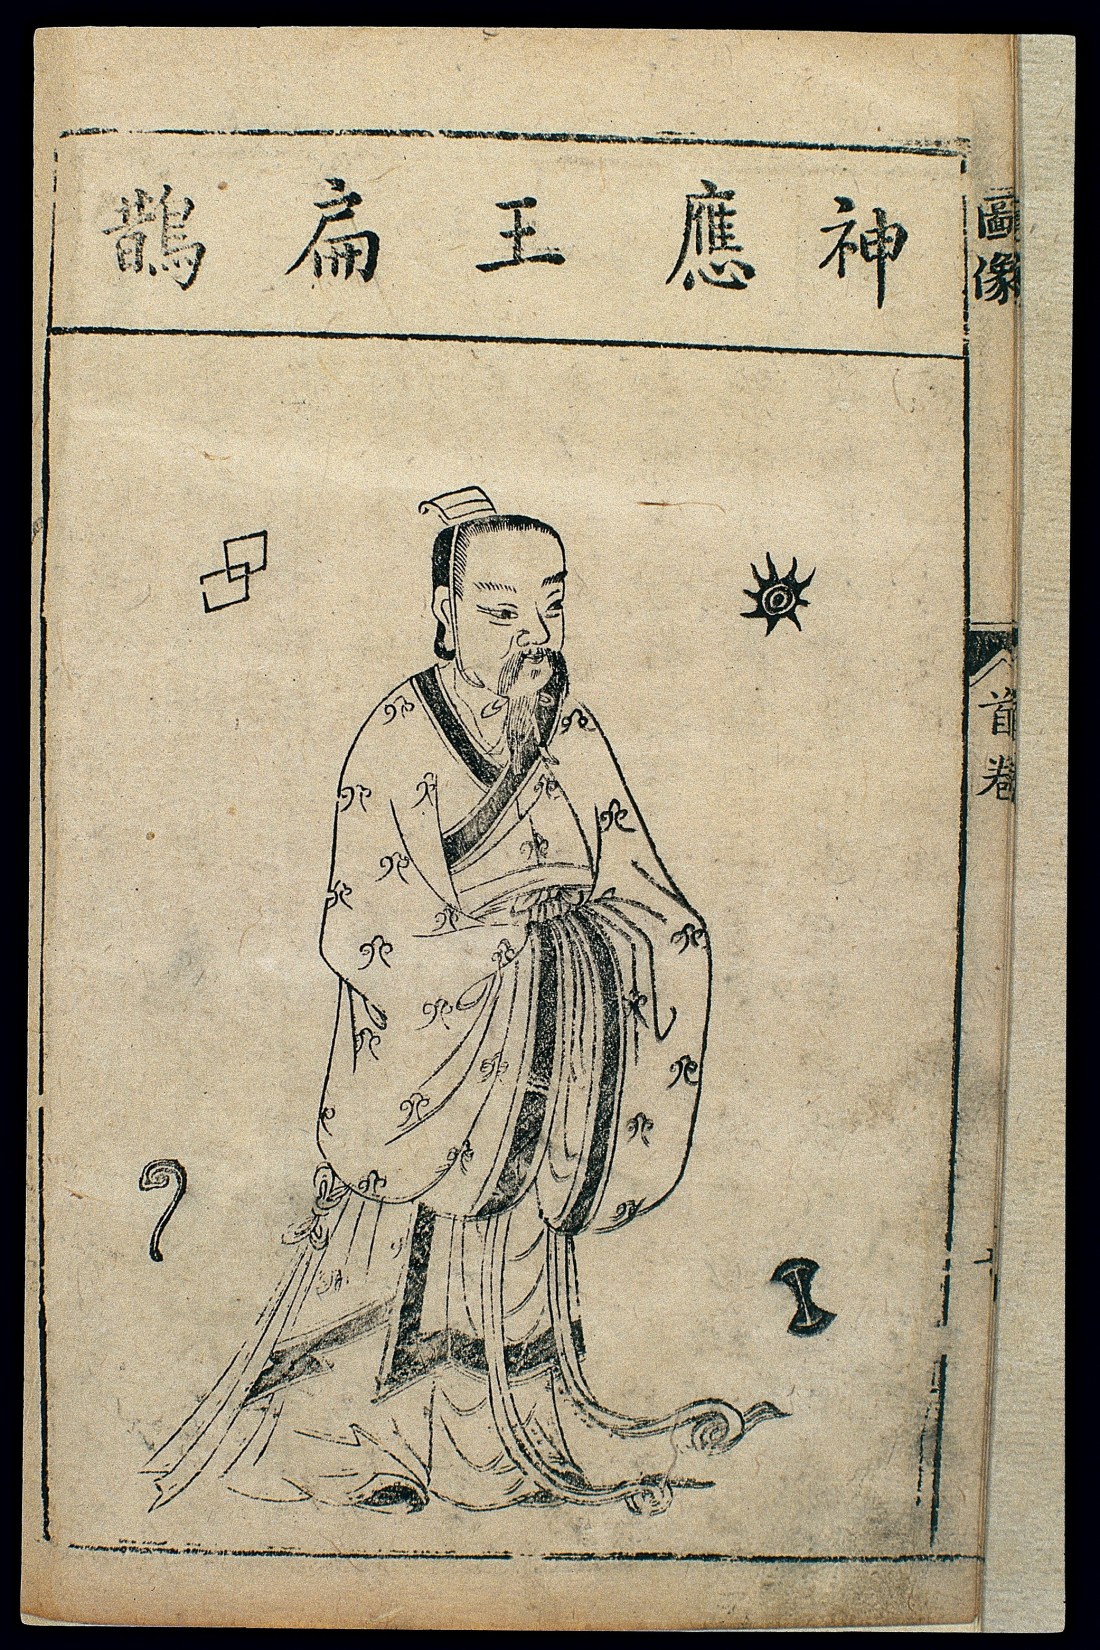 神應王扁鵲
圖像
首卷